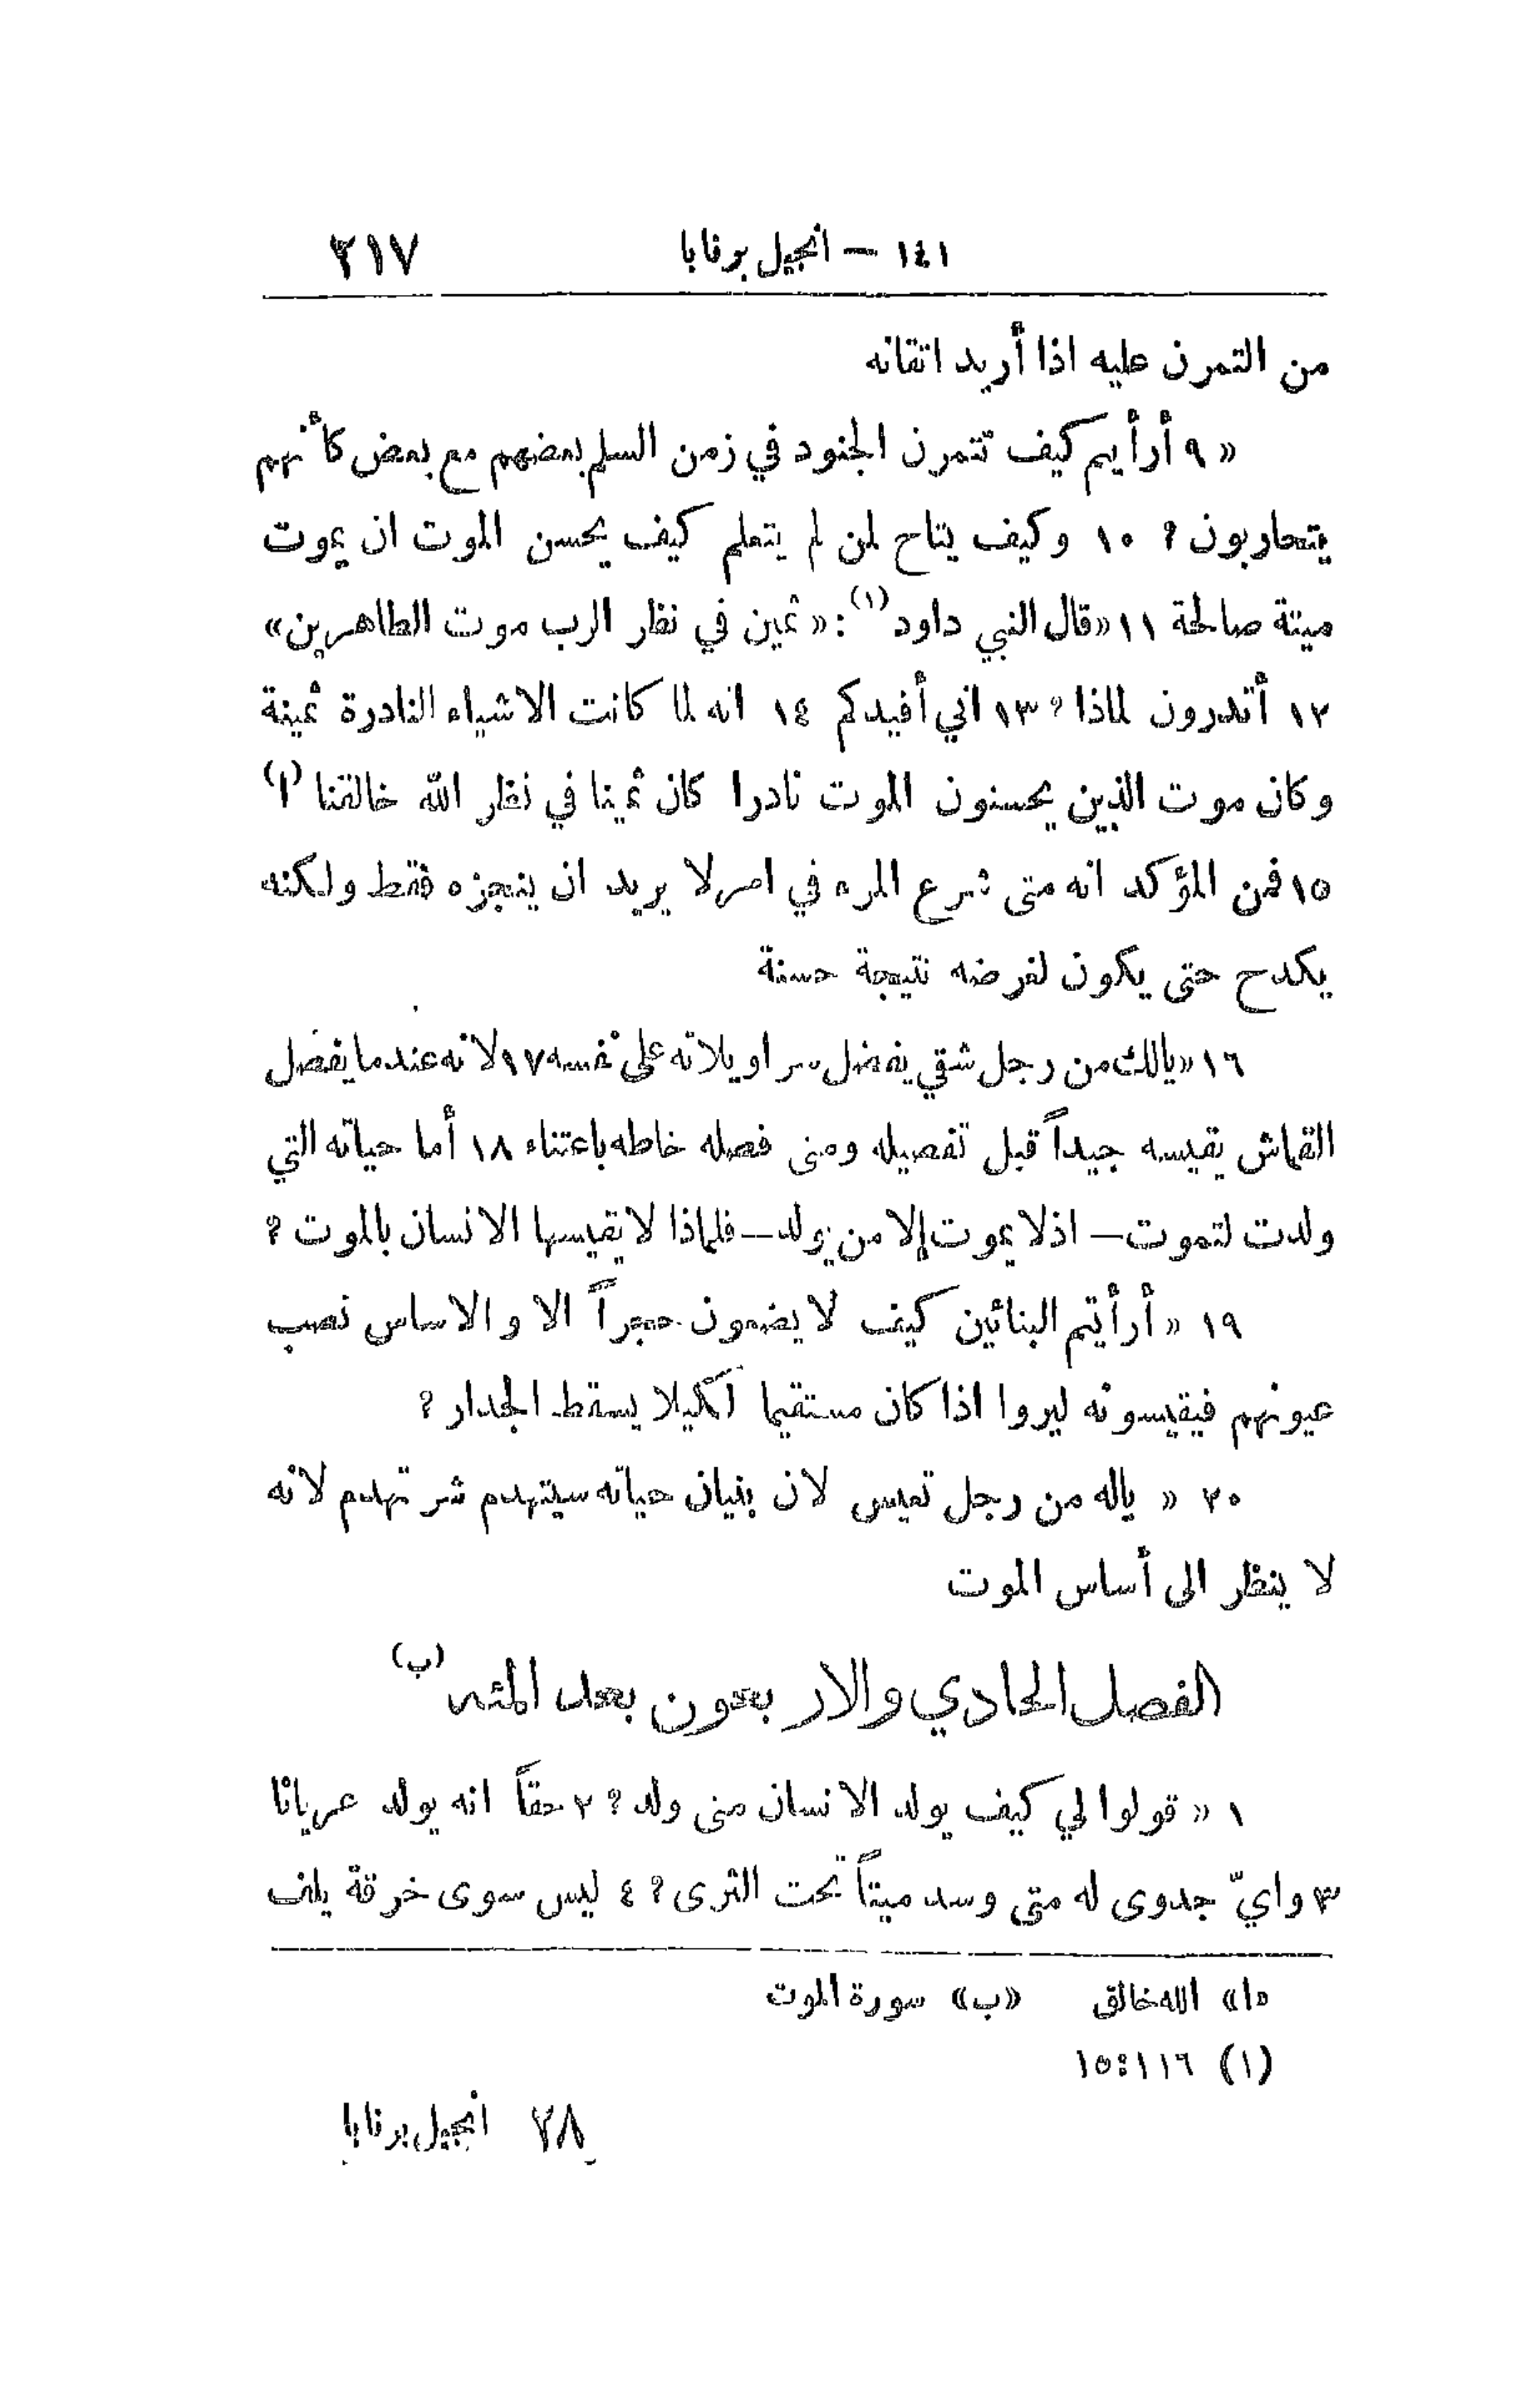 ١٤١ — انجيل برنابا ٢١٧
من التمرن عليه اذا أريد اتقانه
« ٩ أرأيم كيف تتمرن الجنود في زمن السلم بعضهم مع بعض كأنهم
يتحاربون ؟ ١٠ وكيف يتاح لمن لم يتعلم كيف يحسن الموت ان يموت
ميتة صالحة ١١ «قال النبي داود (١) : « ثمين في نظر الرب موت الطاهرين»
١٢ أتدرون لماذا ؟ ١٣ اني أفيدكم ١٤ انه لما كانت الاشياء النادرة ثمينة
وكان موت الذين يحسنون الموت نادرا كان ثمينا في نظر الله خالقنا (ا)
١٥ فمن المؤكد انه متى شرع المرء في امر لا يريد ان ينجزه فقط ولكنه
يكدح حتى يكون لغرضه نتيجة حسنة
١٦ « يالك من رجل شقي يفضل سراويلاته على نفسه ١٧ لانه عندما يفصل
القماش يقيسه جيداً قبل تفصيله ومتى فصله خاطه باعتناء ١٨ أما حياته التي
ولدت لتموت — اذ لا يموت إلا من يولد — فلماذا لا يقيسها الانسان بالموت ؟
١٩ « أرأيتم البنائين كيف لا يضعون حجراً الا والاساس نصب
عيونهم فيقيسونه ليروا اذا كان مستقيما لكيلا يسقط الجدار ؟
٢٠ « ياله من رجل تعيس لان بنيان حياته سيتهدم شر تهدم لانه
لا ينظر الى أساس الموت
الفصل الحادي والاربعون بعد المئه (ب)
١ « قولوا لي كيف يولد الانسان متى ولد ؟ ٢ حقاً انه يولد عريانا
٣ وايّ جدوى له متى وسد ميتاً تحت الثرى ؟ ٤ ليس سوى خرقة يلف
«ا» الله خالق «ب» سورة الموت
(١) ١١٦ : ١٥
٢٨ انجيل برنابا